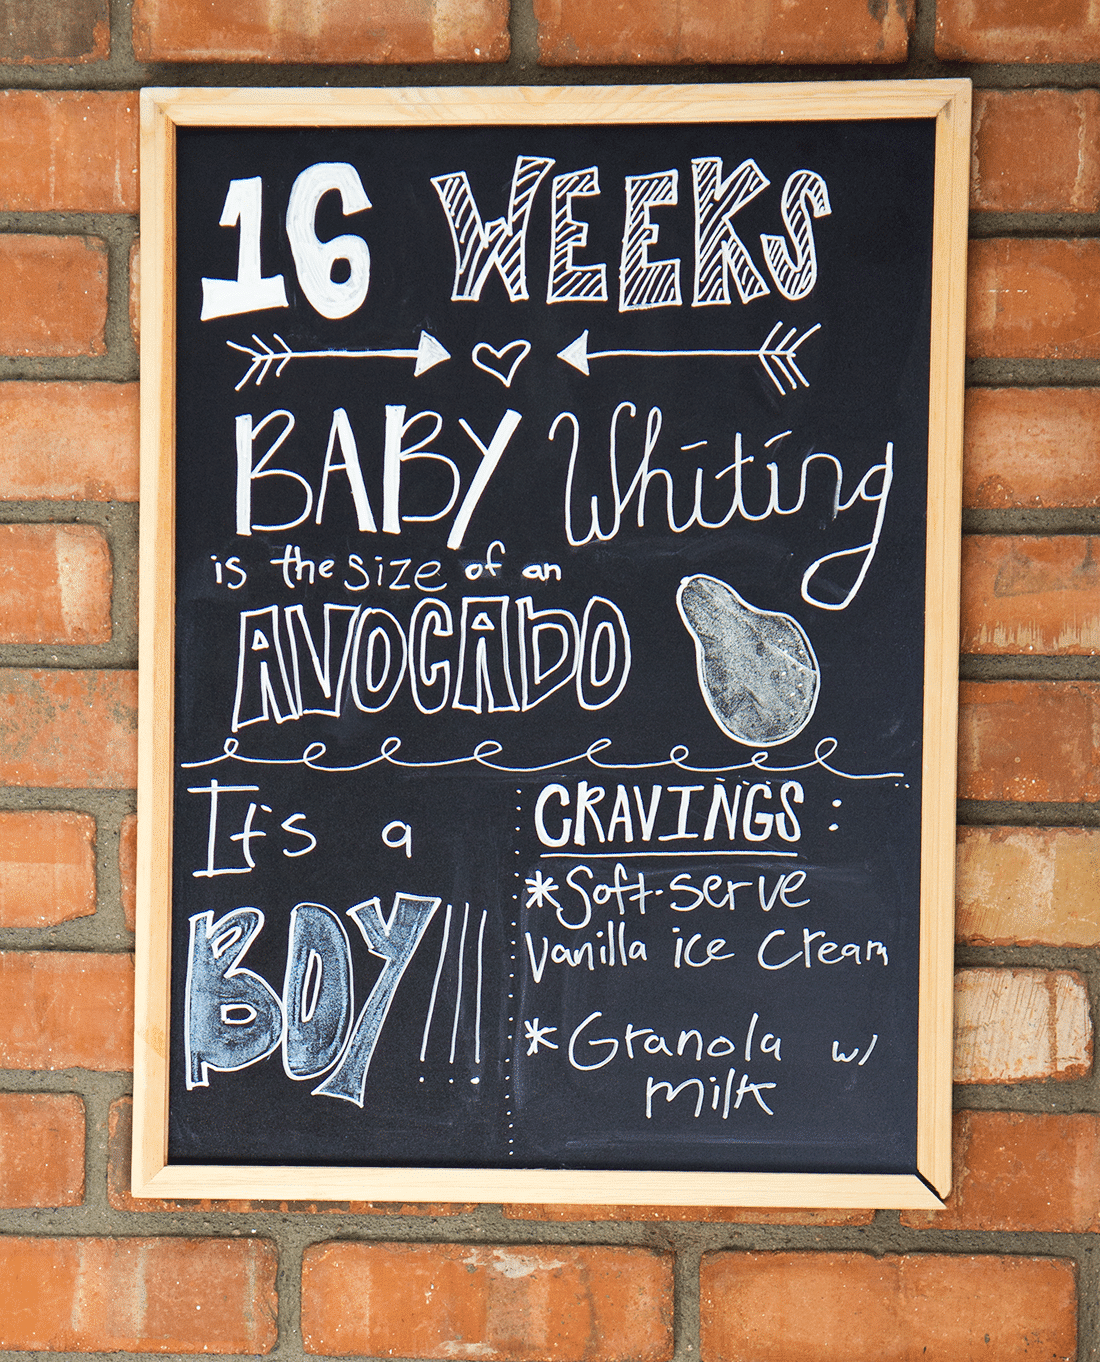 16 WEEKS
BABY Whiting
is the size of an
AVOCADO
It's a
BOY!!!
CRAVINGS:
*Soft-serve
vanilla ice cream
*Granola w/
milk